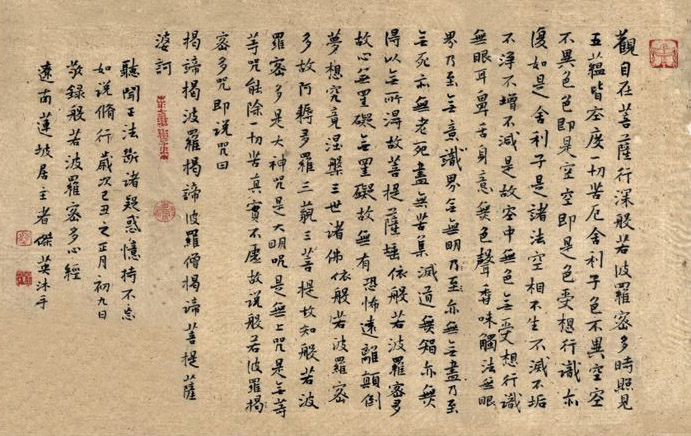 觀自在菩薩行深般若波羅密多時照見
五蘊皆空度一切苦厄舍利子色不異空空
不異色色即是空空即是色受想行識亦
復如是舍利子是諸法空相不生不滅不垢
不淨不增不減是故空中無色無受想行識
無眼耳鼻舌身意無色聲香味觸法無眼
界乃至無意識界無無明乃至亦無無盡乃至
無死亦無老死盡無苦集滅道無智亦無
得以無所得故菩提薩埵依般若波羅密多
故心無罣礙無罣礙故無有恐怖遠離顛倒
夢想究竟涅槃三世諸佛依般若波羅密
多故阿耨多羅三藐三菩提故知般若波
羅密多是大神咒是大明咒是無上咒是無等
等咒能除一切苦真實不虛故說般若波羅揭
密多咒即說咒曰
揭諦揭波羅揭諦波羅僧揭諦菩提薩
婆訶
聽聞正法斷諸疑惑憶持不忘
如說脩行歲次己丑之正月初九日
敬錄般若波羅密多心經
遼南蓮坡居主者傑英沐手